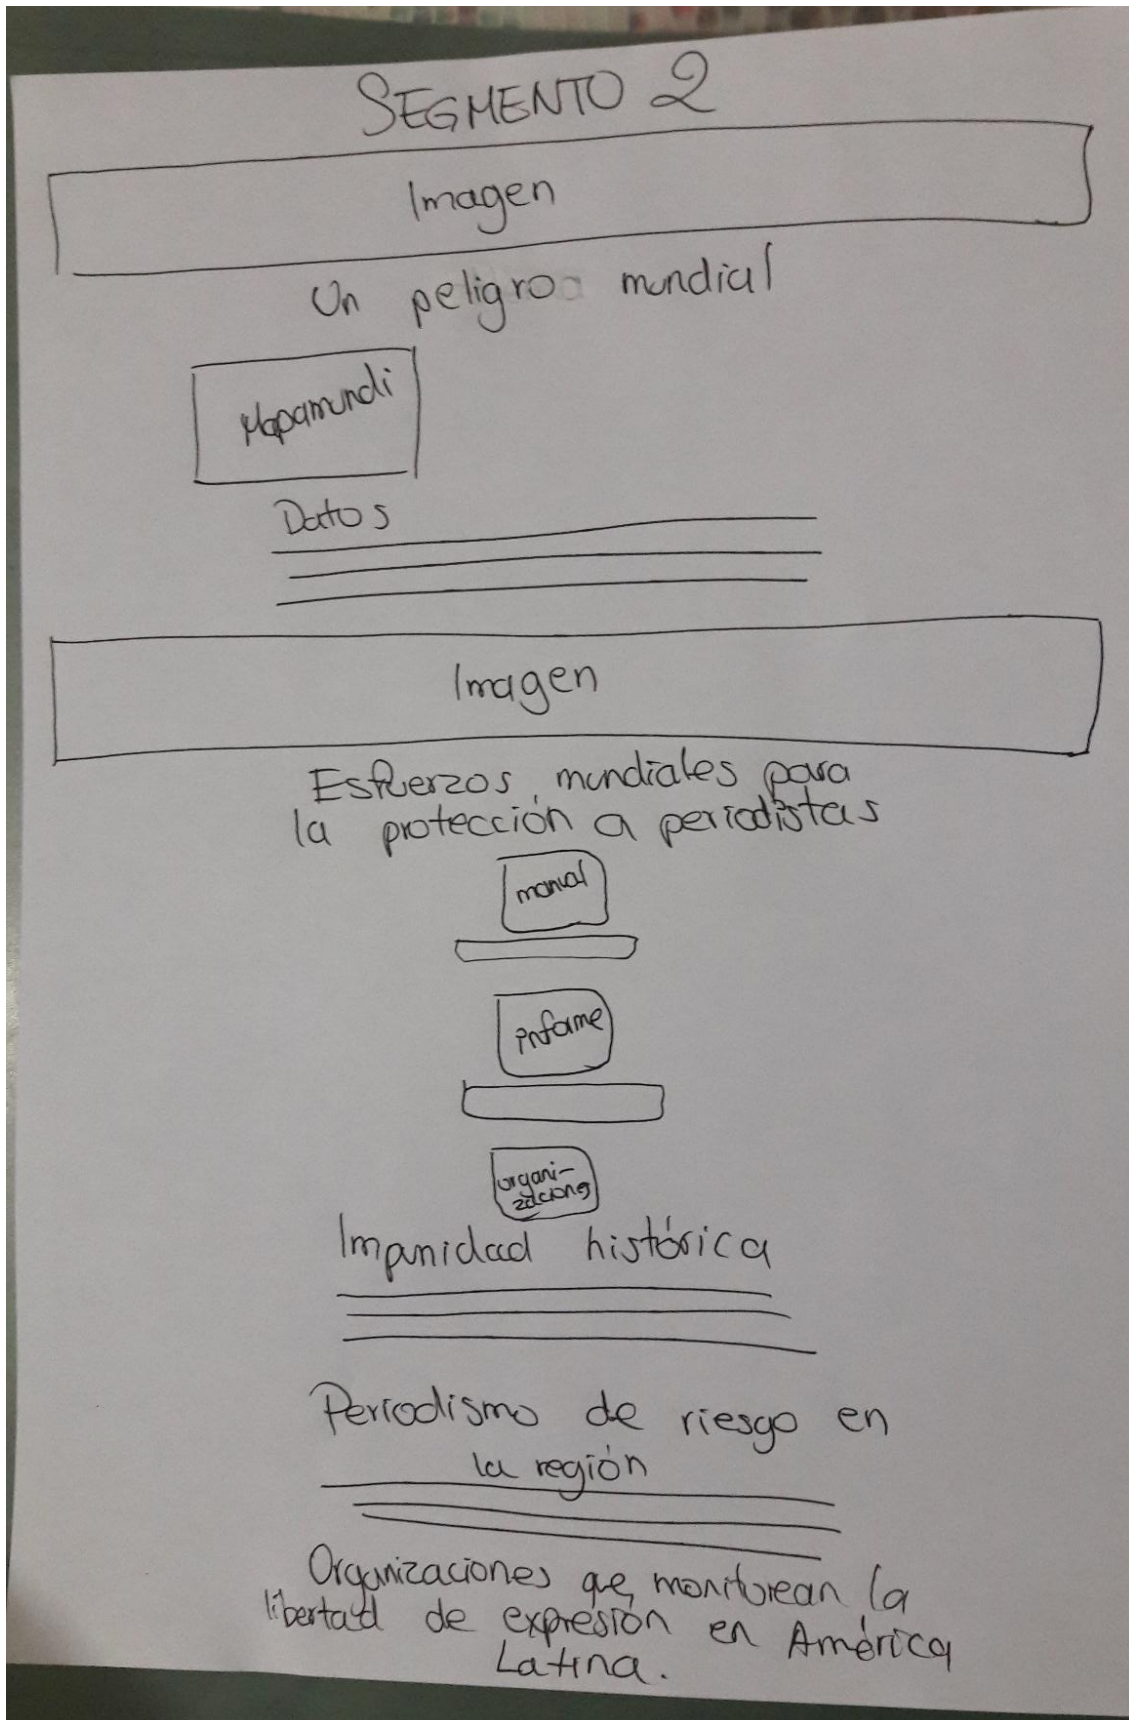 SEGMENTO 2
Imagen
Un peligro mundial
Mapamundi
Datos
Imagen
Esfuerzos mundiales para
la protección a periodistas
manual
informe
organi-
zaciones
Impunidad histórica
Periodismo de riesgo en
la región
Organizaciones que monitorean la
libertad de expresión en América
Latina.